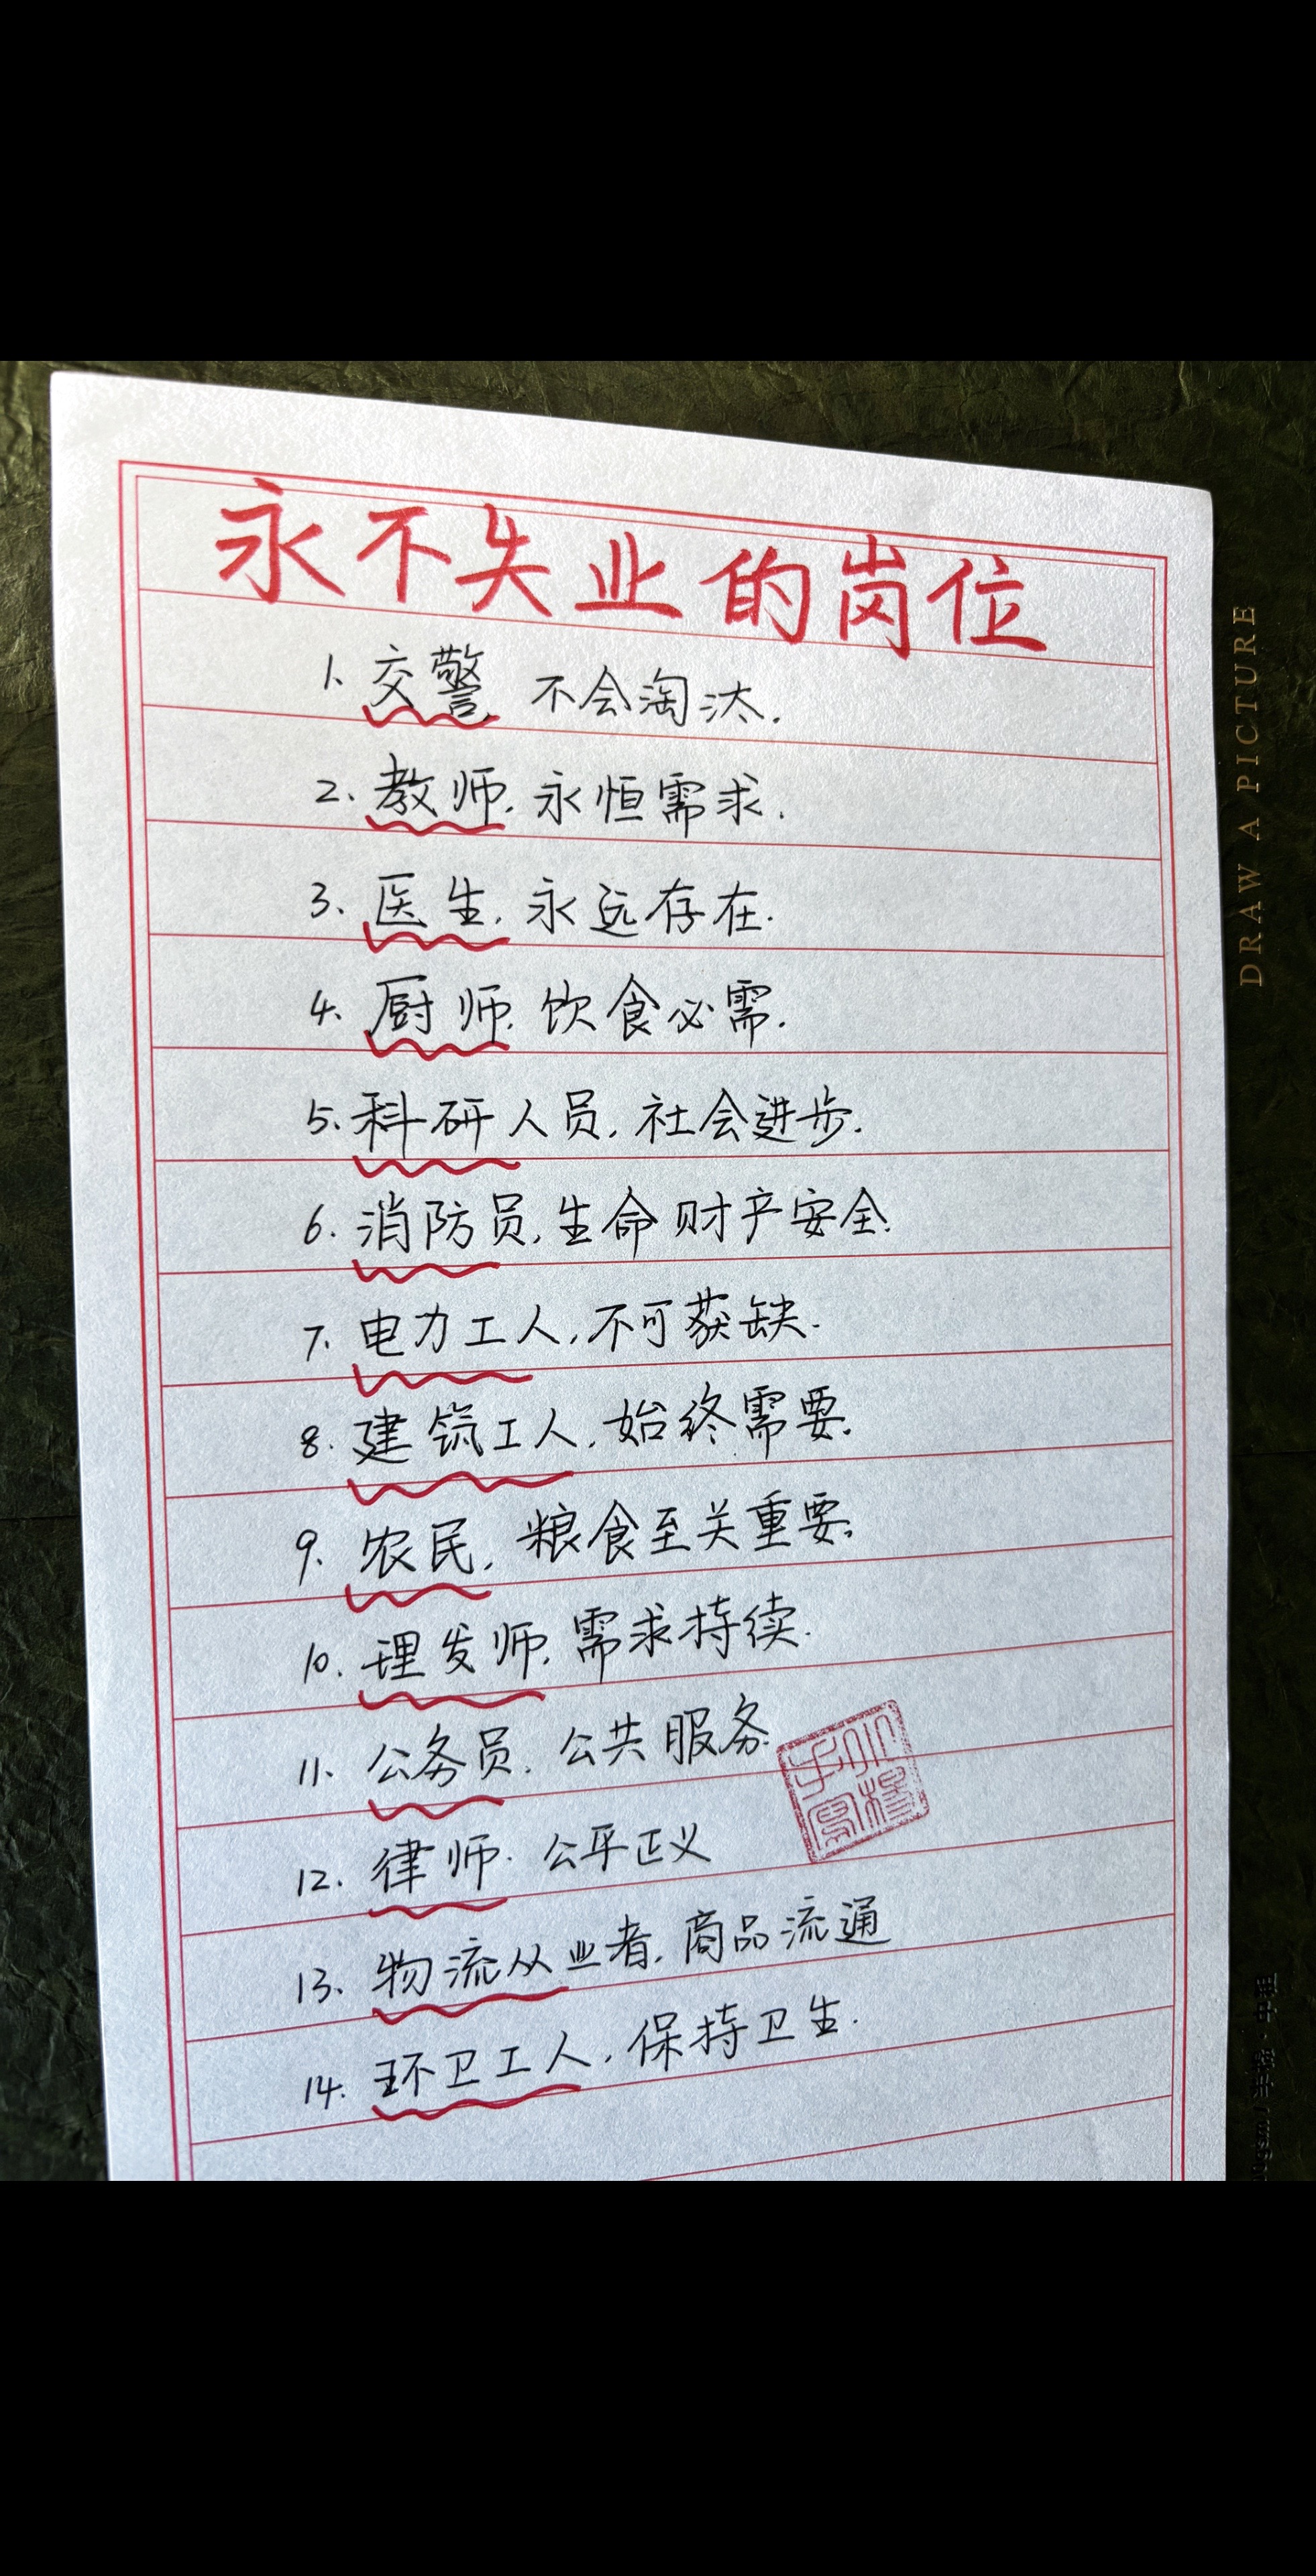 永不失业的岗位
1. 交警 不会淘汰.
2、教师. 永恒需求.
3、医生. 永远存在.
4. 厨师. 饮食必需.
5. 科研人员. 社会进步.
6. 消防员. 生命财产安全.
7. 电力工人, 不可获缺.
8. 建筑工人. 始终需要.
9. 农民. 粮食至关重要.
10. 理发师. 需求持续.
11. 公务员. 公共服务.
12. 律师. 公平正义
13. 物流从业者. 商品流通
14. 环卫工人. 保持卫生.
DRAW A PICTURE